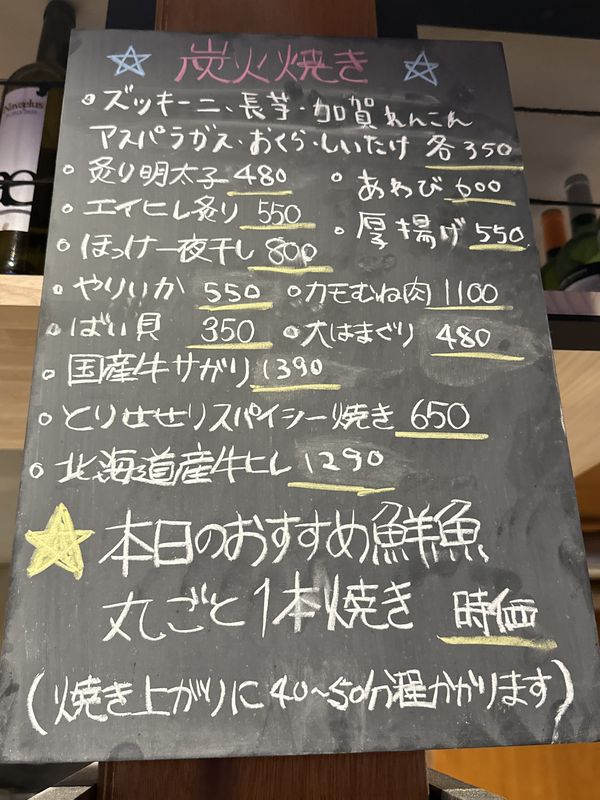 ☆ 炭火焼き ☆
○ズッキーニ、長芋・加賀れんこん
アスパラガス・おくら・しいたけ 各350
○炙り明太子 480
○あわび 600
○エイヒレ炙り 550
○厚揚げ 550
○ほっけ一夜干し 800
○やりいか 550 ○カモむね肉 1100
○ばい貝 350 ○大はまぐり 480
○国産牛サガリ 1390
○とりせせりスパイシー焼き 650
○北海道産牛ヒレ 1290
☆本日のおすすめ鮮魚
丸ごと1本焼き 時価
(焼き上がりに40~50分程かかります)